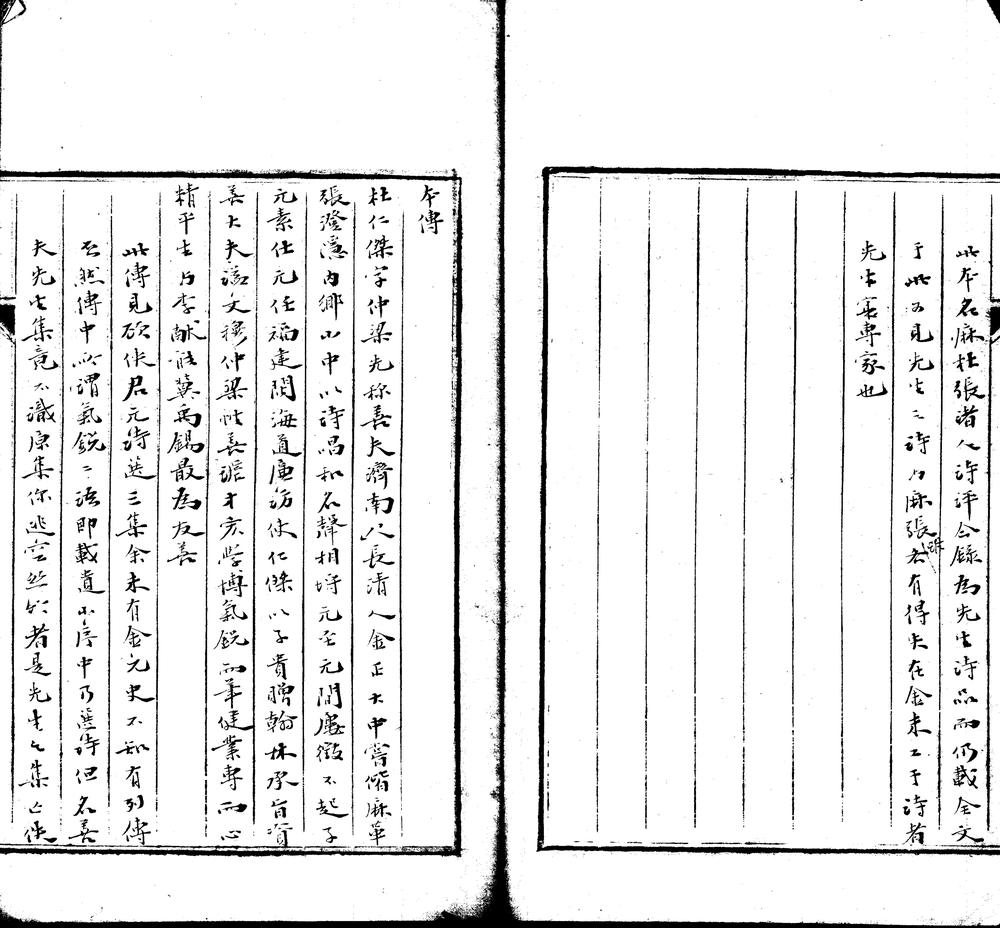 此本名麻杜張諸人詩評今錄為先生詩品而仍載全文
于此可見先生之詩与麻張並有得失在金末工于詩者
先生寔專家也
本傳
杜仁傑字仲梁先称善夫濟南人長清人金正大中嘗偕麻革
張澄隱内鄉山中以詩唱和名聲相埒元至元間屢徵不起子
元素仕元任福建閩海道廉訪使仁傑以子貴贈翰林承旨資
善大夫謚文穆仲梁性善謔才宏學博氣銳而筆健業專而心
精平生与李獻能冀禹錫最為友善
此傳見欵俠君元詩選三集余未有金元史不知有列傳
否然傳中所謂氣銳二語即載遺山序中乃選詩但名善
夫先生集竟不識原集你逃空絲於者是先生之集亡佚